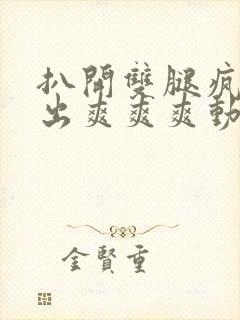 扒開雙腿瘋
出爽爽爽動
金賢重